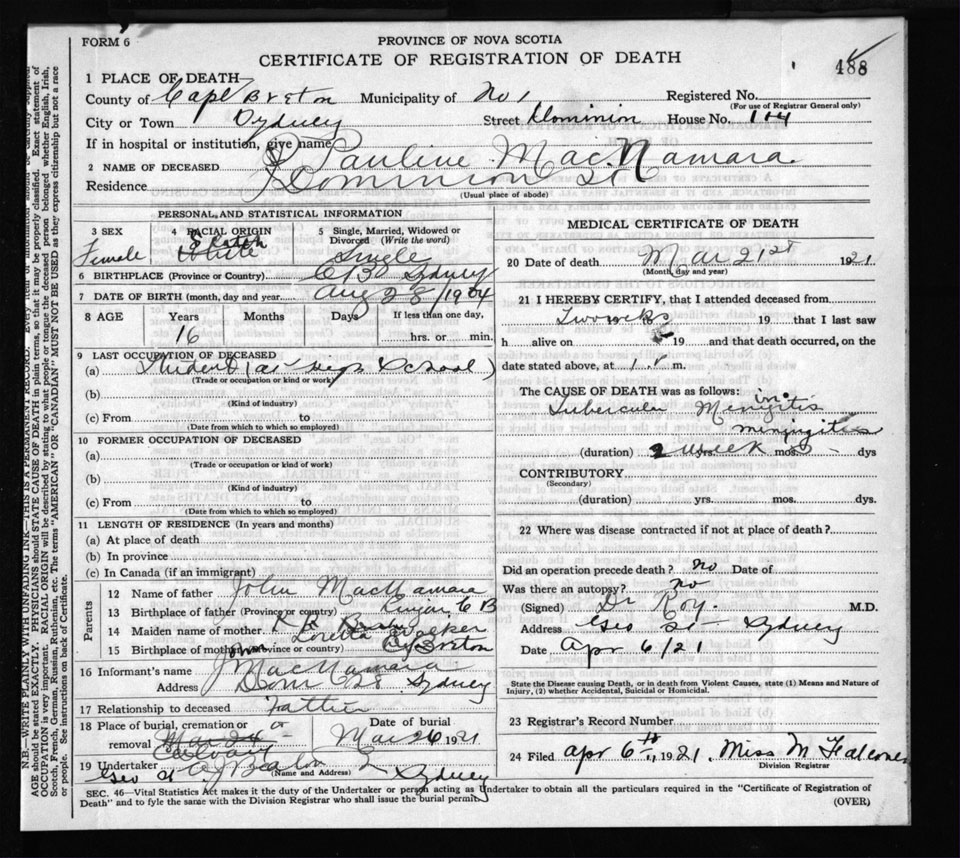 FORM 6
PROVINCE OF NOVA SCOTIA
CERTIFICATE OF REGISTRATION OF DEATH
488
1 PLACE OF DEATH
County of Cape Breton Municipality of No 1 Registered No.
(For use of Registrar General only)
City or Town Sydney Street Dominion House No. 104
If in hospital or institution, give name
2 NAME OF DECEASED Pauline MacNamara
Residence Dominion St
(Usual place of abode)
PERSONAL AND STATISTICAL INFORMATION
3 SEX 4 RACIAL ORIGIN 5 Single, Married, Widowed or Divorced (Write the word)
Female Scotch White Single
6 BIRTHPLACE (Province or Country) C B Sydney
7 DATE OF BIRTH (month, day and year) Aug 28/1904
8 AGE Years Months Days If less than one day,
16 hrs. or min.
9 LAST OCCUPATION OF DECEASED
(a) Student (at High School)
(Trade or occupation or kind or work)
(b)
(Kind of industry)
(c) From to
(Date from which to which so employed)
10 FORMER OCCUPATION OF DECEASED
(a)
(Trade or occupation or kind or work)
(b)
(Kind of industry)
(c) From to
(Date from which to which so employed)
11 LENGTH OF RESIDENCE (In years and months)
(a) At place of death
(b) In province
(c) In Canada (if an immigrant)
Parents
12 Name of father John MacNamara
13 Birthplace of father (Province or country) C B
14 Maiden name of mother Loretta Walker
15 Birthplace of mother (Province or country) C Breton
16 Informant's name John MacNamara
Address Dom 28 Sydney
17 Relationship to deceased Father
18 Place of burial, cremation or removal Calvary
Date of burial Mar 26 1921
19 Undertaker A J Beaton Sydney
(Name and Address)
Geo St
MEDICAL CERTIFICATE OF DEATH
20 Date of death Mar 21st 1921
(Month, day and year)
21 I HEREBY CERTIFY, that I attended deceased from
Two weeks 19 that I last saw
h alive on 19 and that death occurred, on the
date stated above, at m.
The CAUSE OF DEATH was as follows:
Tubercular Meningitis
meningitis
(duration) 2 week yrs. mos. dys
CONTRIBUTORY
(Secondary)
(duration) yrs. mos. dys.
22 Where was disease contracted if not at place of death?
Did an operation precede death? No Date of
Was there an autopsy? No
(Signed) Dr Roy. M.D.
Address Geo St Sydney
Date Apr 6/21
State the Disease causing Death, or in death from Violent Causes, state (1) Means and Nature of
Injury, (2) whether Accidental, Suicidal or Homicidal.
23 Registrar's Record Number
24 Filed Apr 6th, 1921. Miss M Falconer
Division Registrar
SEC. 46—Vital Statistics Act makes it the duty of the Undertaker or person acting as Undertaker to obtain all the particulars required in the "Certificate of Registration of
Death" and to fyle the same with the Division Registrar who shall issue the burial permit.
(OVER)
N.B.—WRITE PLAINLY WITH UNFADING INK—THIS IS A PERMANENT RECORD. Every item of information should be carefully supplied
AGE should be stated EXACTLY. PHYSICIANS should STATE CAUSE OF DEATH in plain terms, so that it may be properly classified. Exact statement of
OCCUPATION is very important. RACIAL ORIGIN will be described by stating to what people or tongue the deceased person belonged whether English, Irish,
Scotch, French, German, Russian, Ruthenian, etc. The terms "AMERICAN" OR "CANADIAN" MUST NOT BE USED as they express citizenship but not a race
or people. See instructions on back of Certificate.